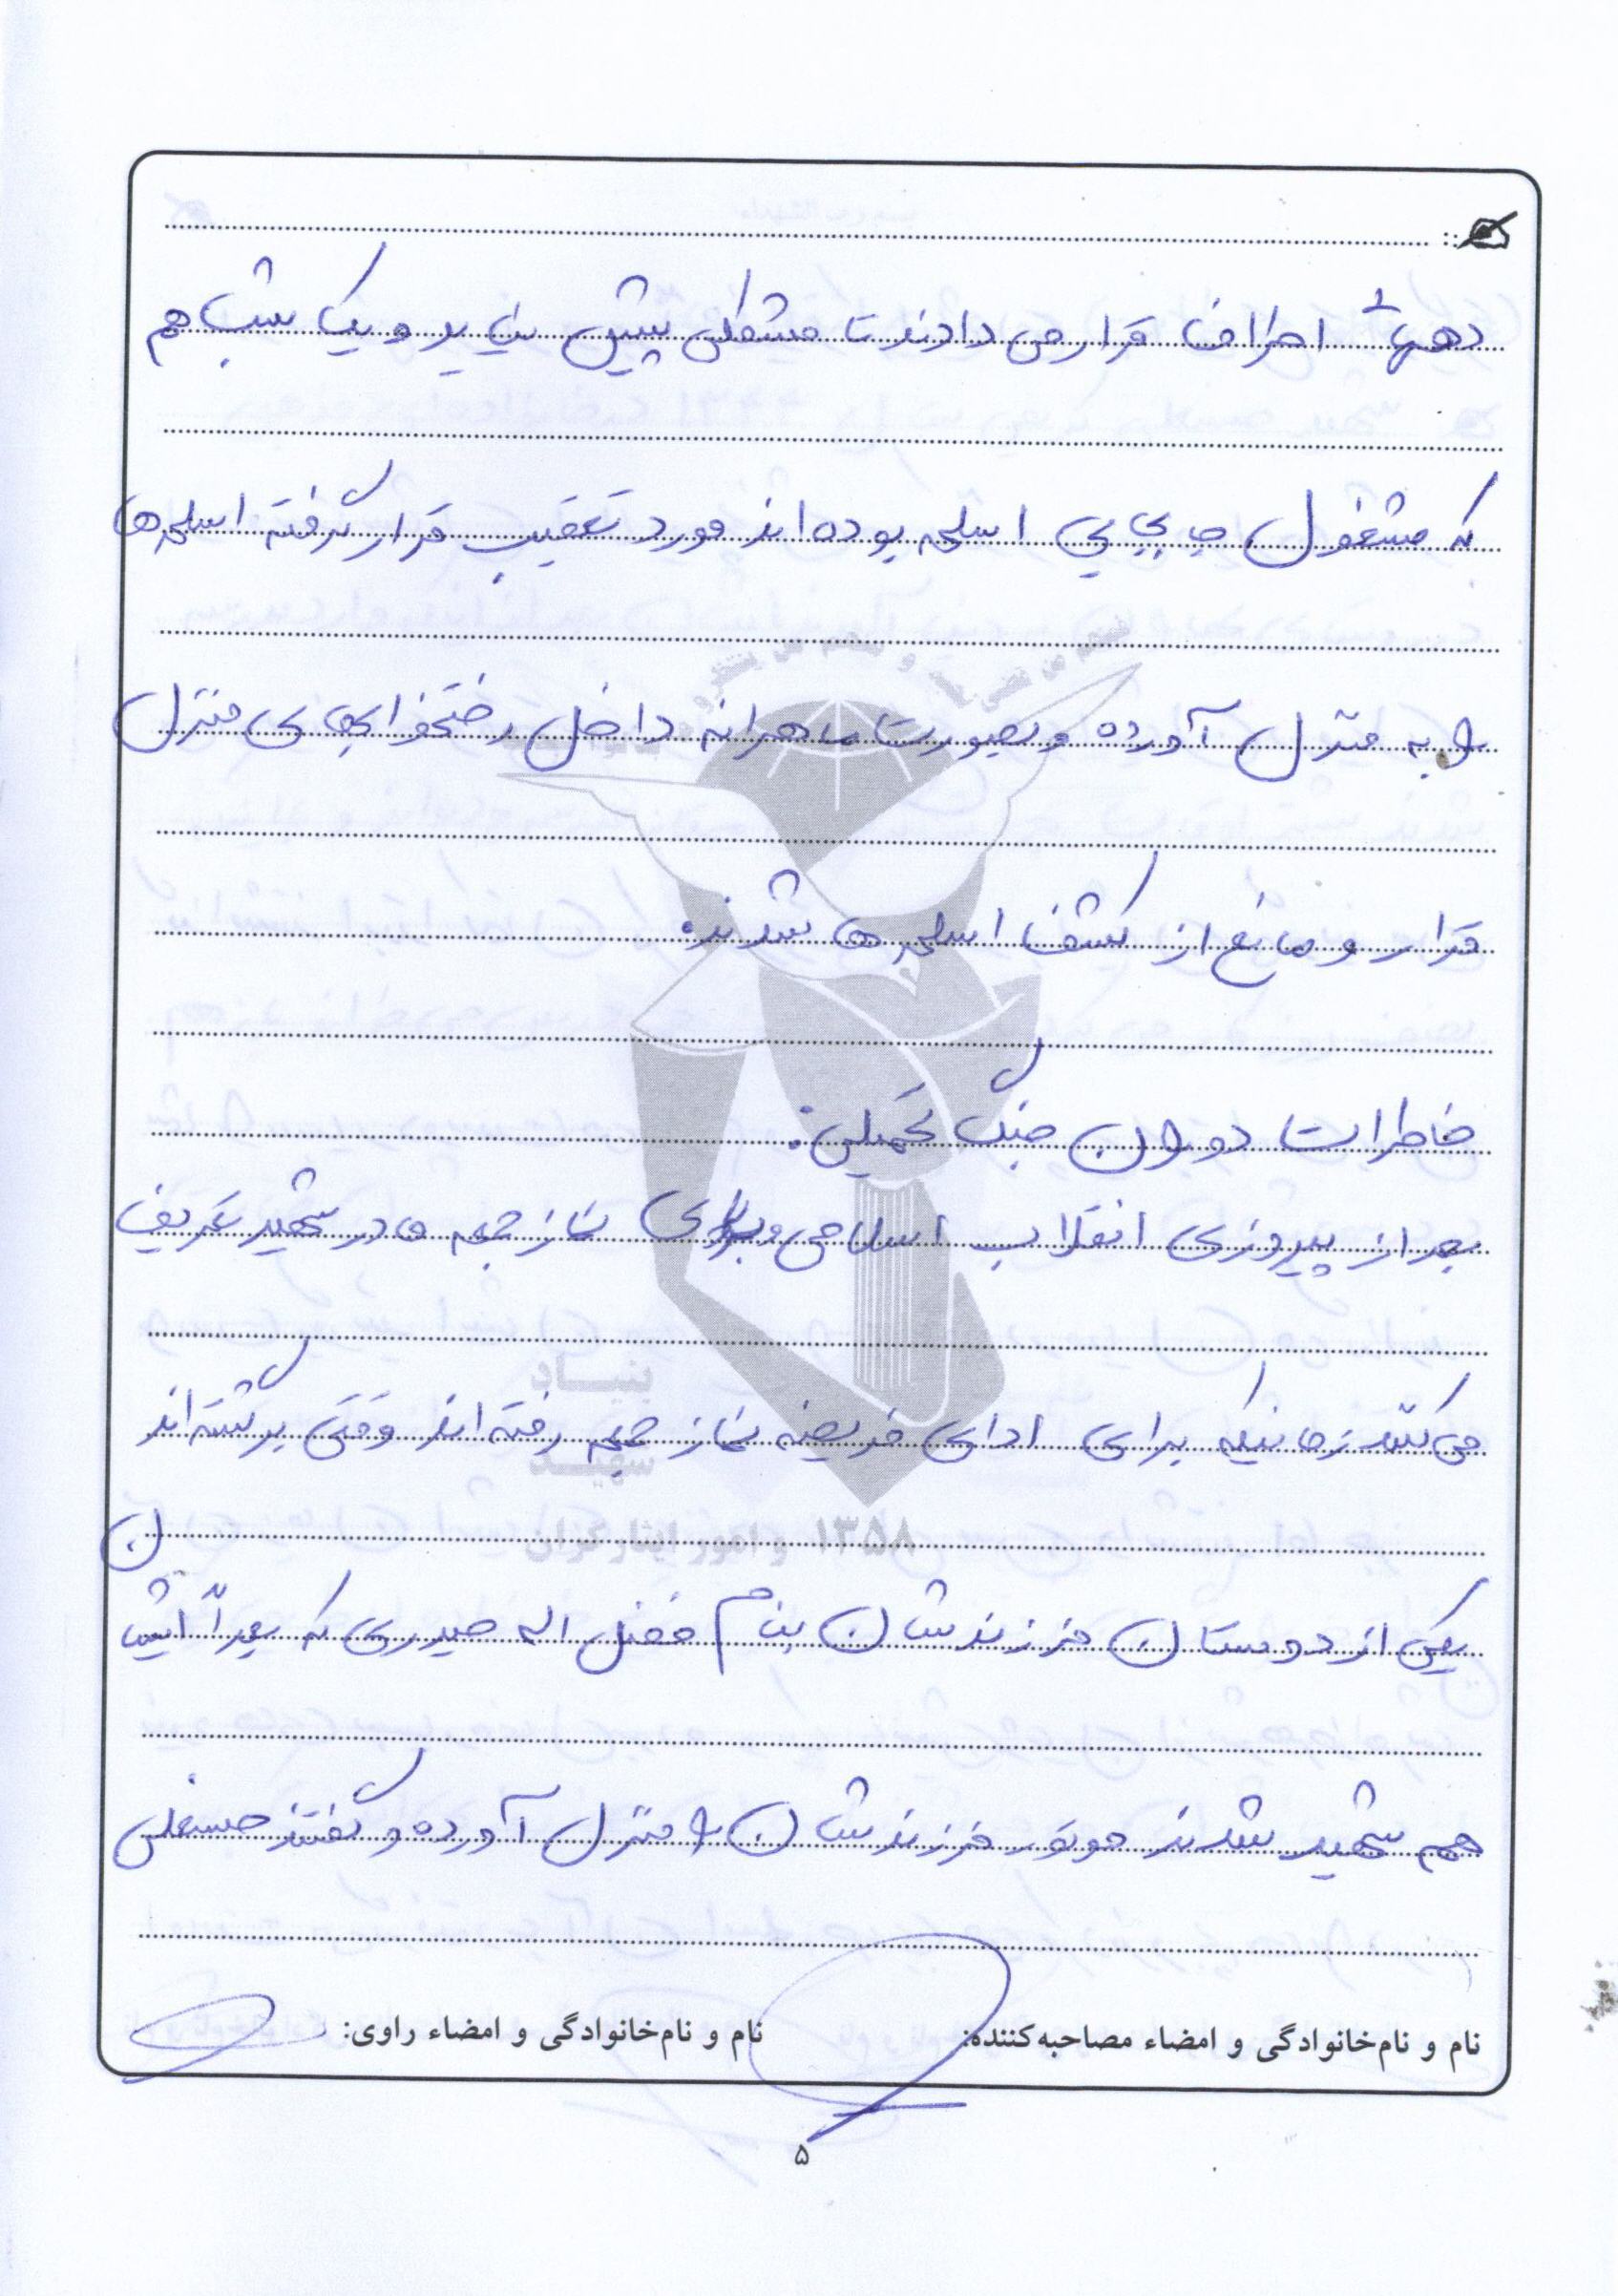 دههات اطراف قرار می دادند تا مشکلی پیش نیاید و یک شب هم
که مشغول جابجایی اسلحه بوده اند مورد تعقیب قرار گرفته اسلحه ها
را به منزل آورده و بصورت ماهرانه داخل رختخوابهای منزل
قرار و مانع از کشف اسلحه ها شدند.
خاطرات دوران جنگ تحمیلی:
بعد از پیروزی انقلاب اسلامی و برای نماز جمعه مادر شهید تعریف
می کنند زمانیکه برای ادای فریضه نماز جمعه رفته اند وقتی برگشته اند
یکی از دوستان فرزندشان بنام فضل اله حیدری که بعداً ایشان
هم شهید شدند موتور فرزندشان را منزل آورده و گفتند حسنعلی
نام و نام‌خانوادگی و امضاء مصاحبه‌کننده: نام و نام‌خانوادگی و امضاء راوی:
۵
بنیاد
شهید
و امور ایثارگران ۱۳۵۸